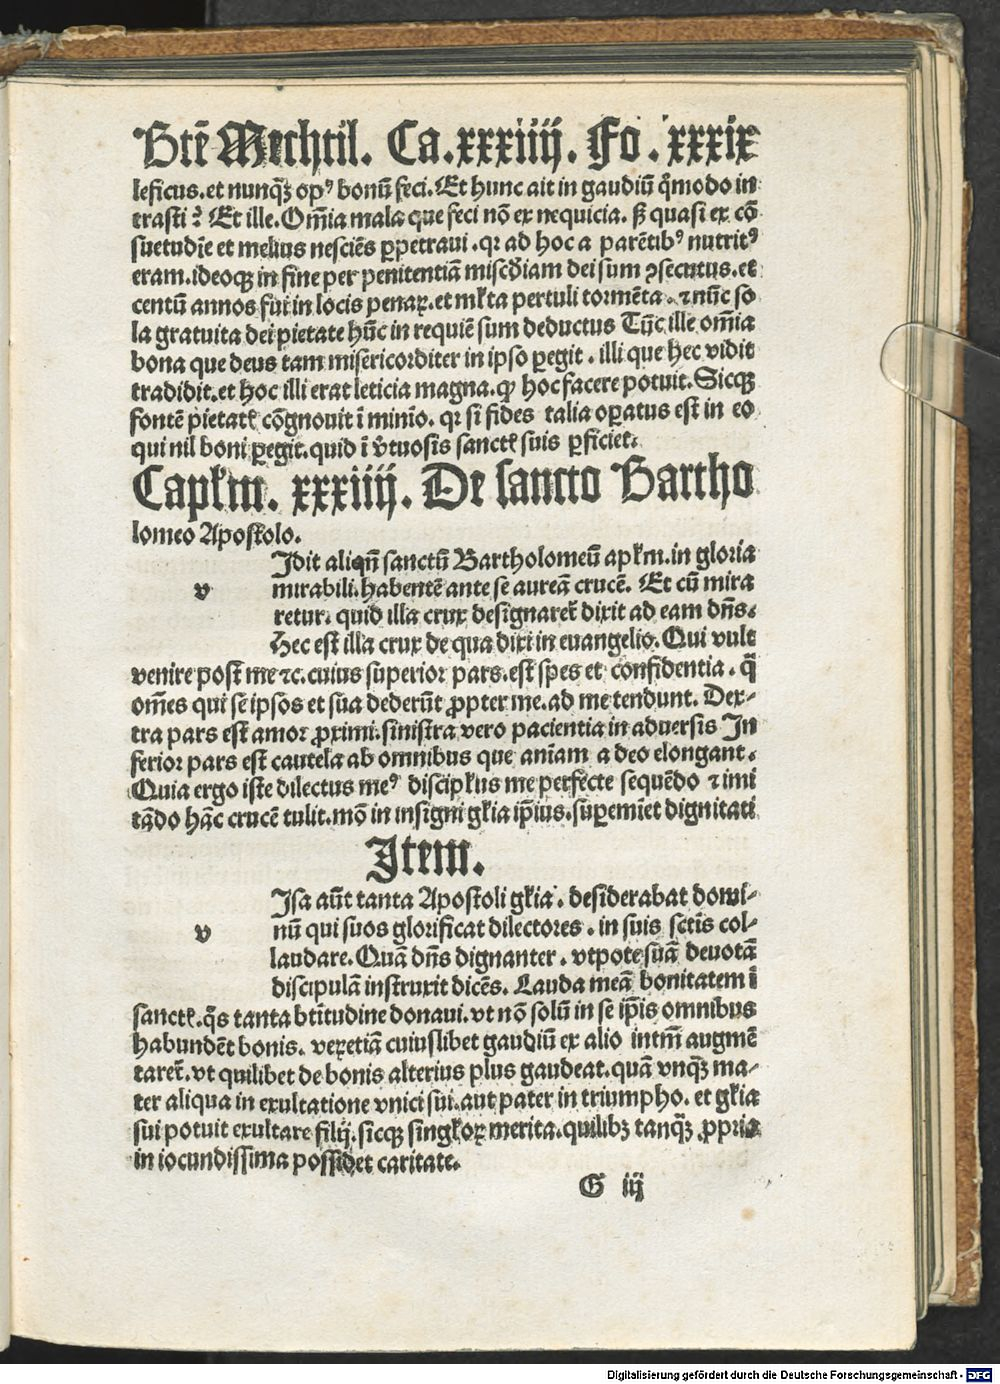 Btē Mechtil. Ca. xxxiiij. Fo. xxxix
leficus. et nunq̄ꝫ opꝰ bonū feci. Et hunc ait in gaudiū q̊modo in
trasti? Et ille. Om̄ia mala que feci nō ex nequicia. sꝫ quasi ex cō
suetudīe et melius nesciēs ꝑpetraui. qꝛ ad hoc a parētibꝰ nutritꝰ
eram. ideoqꝫ in fine per penitentiā mis̄cdiam dei sum ↄsecutus. et
centū annos fui in locis penaꝝ. et ml̓ta pertuli tormēta. ⁊ nūc so
la gratuita dei pietate hūc in requiē sum deductus Tūc ille om̄ia
bona que deus tam misericorditer in ipso ꝑegit. illi que hec vidit
tradidit. et hoc illi erat leticia magna. ꝙ hoc facere potuit. Sicqꝫ
fontē pietatꝭ cōgnouit ī minīo. qꝛ si fides talia oꝑatus est in eo
qui nil boni ꝑegit. quid ī v̓tuosis sanctꝭ suis ꝑficiet.
Capl̓m. xxxiiij. De sancto Bartho
lomeo Apostolo.
v
Idit aliqn̄ sanctū Bartholomeū apl̓m. in gloria
mirabili. habentē ante se aureā crucē. Et cū mira
retur. quid illa crux designaret̄ dixit ad eam dn̄s.
Hec est illa crux de qua dixi in euangelio. Qui vult
venire post me ⁊c. cuius superior pars. est spes et confidentia. q̄
om̄es qui se ipsos et sua dederūt ꝓpter me. ad me tendunt. Dex-
tra pars est amor ꝓximi. sinistra vero pacientia in aduersis In
ferior pars est cautela ab omnibus que anīam a deo elongant.
Quia ergo iste dilectus meꝰ discipl̓us me perfecte sequēdo ⁊ imi
tādo hāc crucē tulit. mō in insigni gl̓ia ip̄ius. suꝑemīet dignitati
Item.
v
Isa aūt tanta Apostoli gl̓ia. desiderabat domi-
nū qui suos glorificat dilectores. in suis sctīs col-
laudare. Quā dn̄s dignanter. vtpote suā deuotā
discipulā instruxit dicēs. Lauda meā bonitatem ī
sanctꝭ. q̄s tanta btītudine donaui. vt nō solū in se ip̄is omnibus
habundēt bonis. veꝝetiā cuiuslibet gaudiū ex alio intm̄ augmē
taret̄. vt quilibet de bonis alterius plus gaudeat. quā vnq̄ꝫ ma-
ter aliqua in exultatione vnici sui. aut pater in triumpho. et gl̓ia
sui potuit exultare filij. sicqꝫ singl̓oꝝ merita. quilibꝫ tanq̄ꝫ ꝓpria
in iocundissima possidet caritate.
G iij
Digitalisierung gefördert durch die Deutsche Forschungsgemeinschaft - DFG